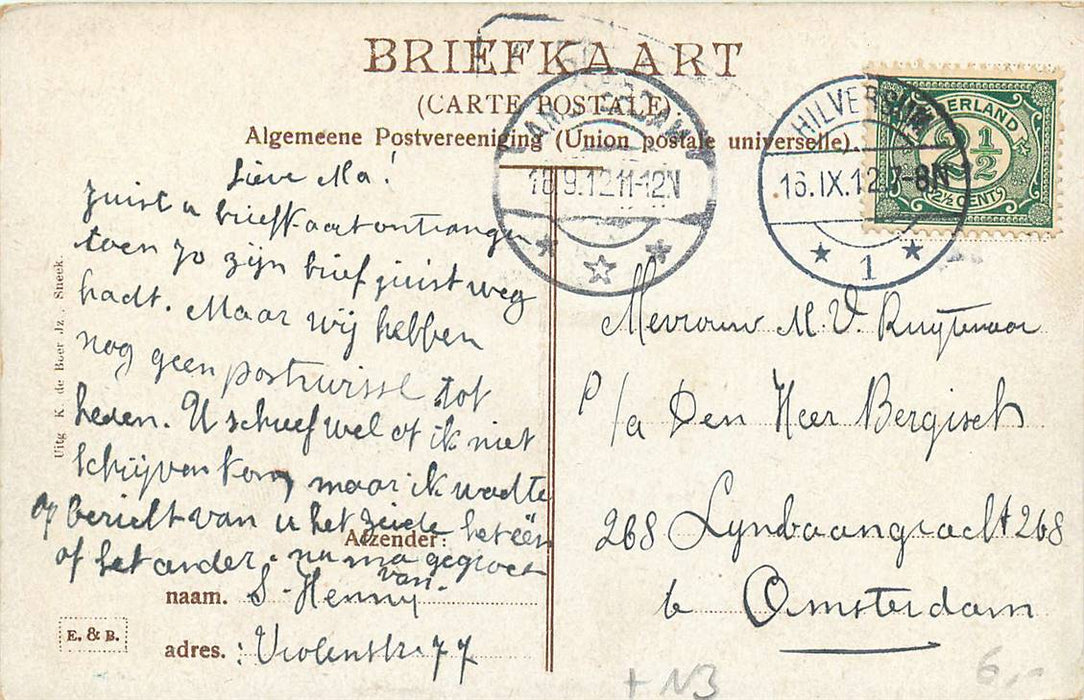 BRIEFKAART
(CARTE POSTALE)
Algemeene Postvereeniging (Union postale universelle).
AMSTERDAM
18.9.12 11-12V
HILVERSUM
16.IX.12 7-8N
1
NEDERLAND
2½
2½ CENT
Lieve Ma!
Juist u briefkaart ontvange
toen Jo zijn brief juist weg
hadt. Maar wij hebben
nog geen postwissel tot
heden. U schreef wel of ik niet
schrijven kon, maar ik wachte
op bericht van u het het één
of het ander. nu ma gegroet
van
Afzender:
naam. S. Henny
adres. : Violenstr. 77
E. & B.
Uitg K. de Boer Jz., Sneek.
Mevrouw M. V. Ruijtenaar
p/a Den Heer Bergisch
268 Lynbaangracht 268
te Amsterdam
+ NB
6,-